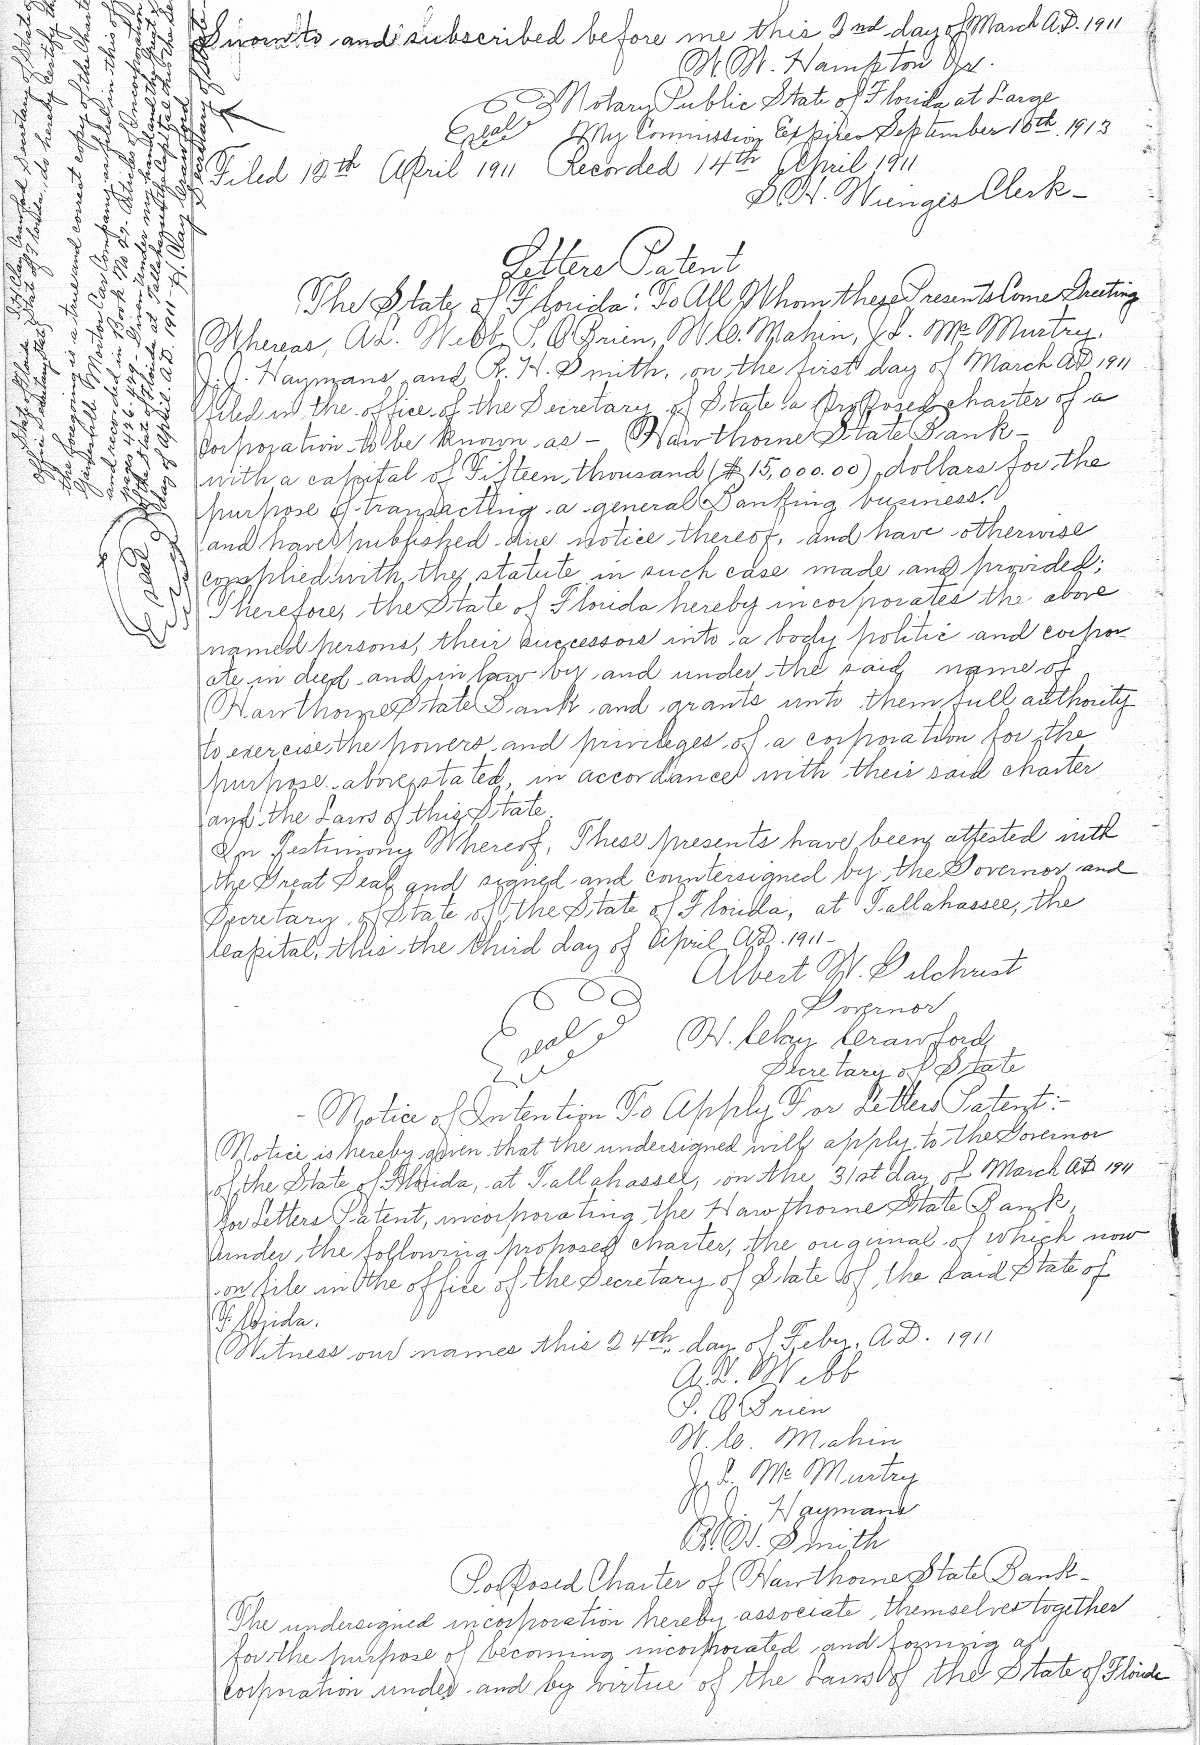 Sworn to and subscribed before me this 2nd day of March A.D. 1911
W. W. Hampton Jr.
Notary Public State of Florida at Large
Seal My Commission Expires September 16th 1913
Filed 12th April 1911 Recorded 14th April 1911
S. H. Wienges Clerk-
Letters Patent
The State of Florida: To All Whom these Presents Come Greeting
Whereas, A.L. Webb, P. O'Brien, W.C. Mahin, J.L. McMurtry,
J.J. Haymans, and R. H. Smith, on the first day of March A.D. 1911
filed in the office of the Secretary of State a proposed charter of a
corporation to be known as - Hawthorne State Bank -
with a capital of Fifteen thousand ($15,000.00) dollars for the
purpose of transacting a general Banking business.
and have published due notice thereof, and have otherwise
complied with the statute in such case made and provided;
Therefore, the State of Florida hereby incorporates the above
named persons, their successors into a body politic and corpor
ate in deed and in law by and under the said name of
Hawthorne State Bank and grants unto them full authority
to exercise the powers and privileges of a corporation for the
purpose above stated, in accordance with their said charter
and the Laws of this State.
In Testimony Whereof, These presents have been attested with
the Great Seal and signed and countersigned by the Governor and
Secretary of State of the State of Florida, at Tallahassee, the
Capital, this the third day of April A.D. 1911-
Albert W. Gilchrist
Governor
seal H. Clay Crawford
Secretary of State
- Notice of Intention To Apply For Letters Patent:-
Notice is hereby given that the undersigned will apply to the Governor
of the State of Florida, at Tallahassee, on the 31st day of March A.D. 1911
for Letters Patent, incorporating the Hawthorne State Bank,
under the following proposed charter, the original of which now
on file in the office of the Secretary of State of the said State of
Florida.
Witness our names this 24th day of Feby. A.D. 1911
A.L. Webb
P. O'Brien
W.C. Mahin
J.L. McMurtry
J.J. Haymans
R.H. Smith
Proposed Charter of Hawthorne State Bank-
The undersigned incorporation hereby associate themselves together
for the purpose of becoming incorporated and forming a
corporation under and by virtue of the Laws of the State of Florida
State of Florida I H Clay Crawford Secretary of State of
Office Secretary State State of Florida, do hereby certify that
the foregoing is a true and correct copy of the Charter
Gainesville Motor Car Company, as filed in this office
and recorded in Book No 27. Articles of Incorporation
pages 446-449- Given under my hand and the Great Seal
of the State of Florida at Tallahassee the Capital this the
day of April. A.D. 1911- H. Clay Crawford
Secretary of State
Seal